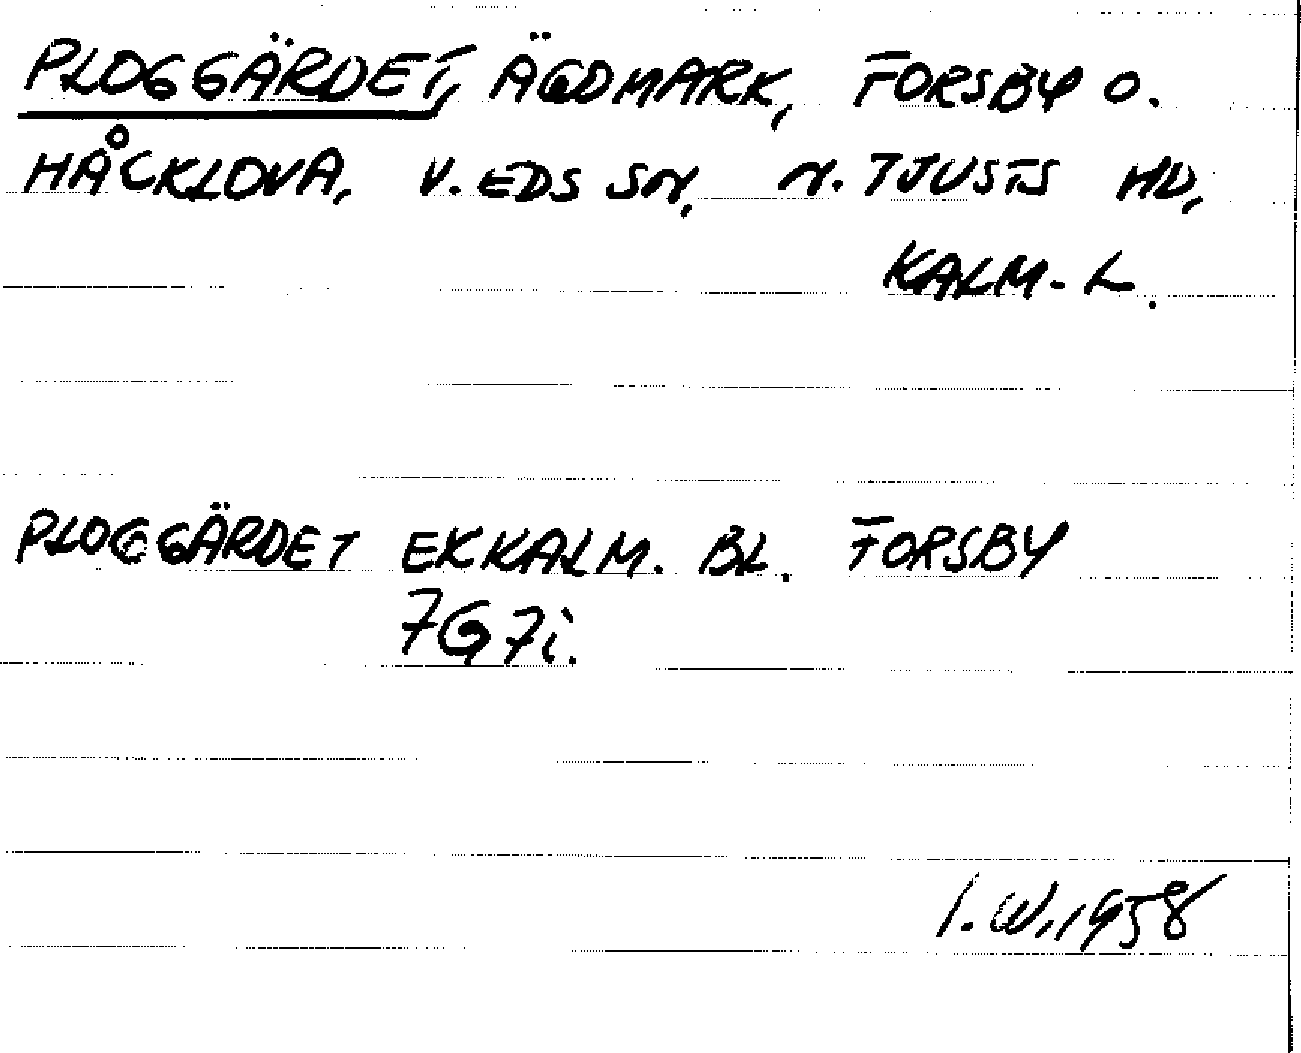 PLOGGÄRDET, ÄGOMARK, FORSBY O.
HÅCKLOVA, V. EDS SN, N. TJUSTS HD,
KALM. L.
PLOGGÄRDET EKKALM. BL. FORSBY
7G7i.
I.W. 1958